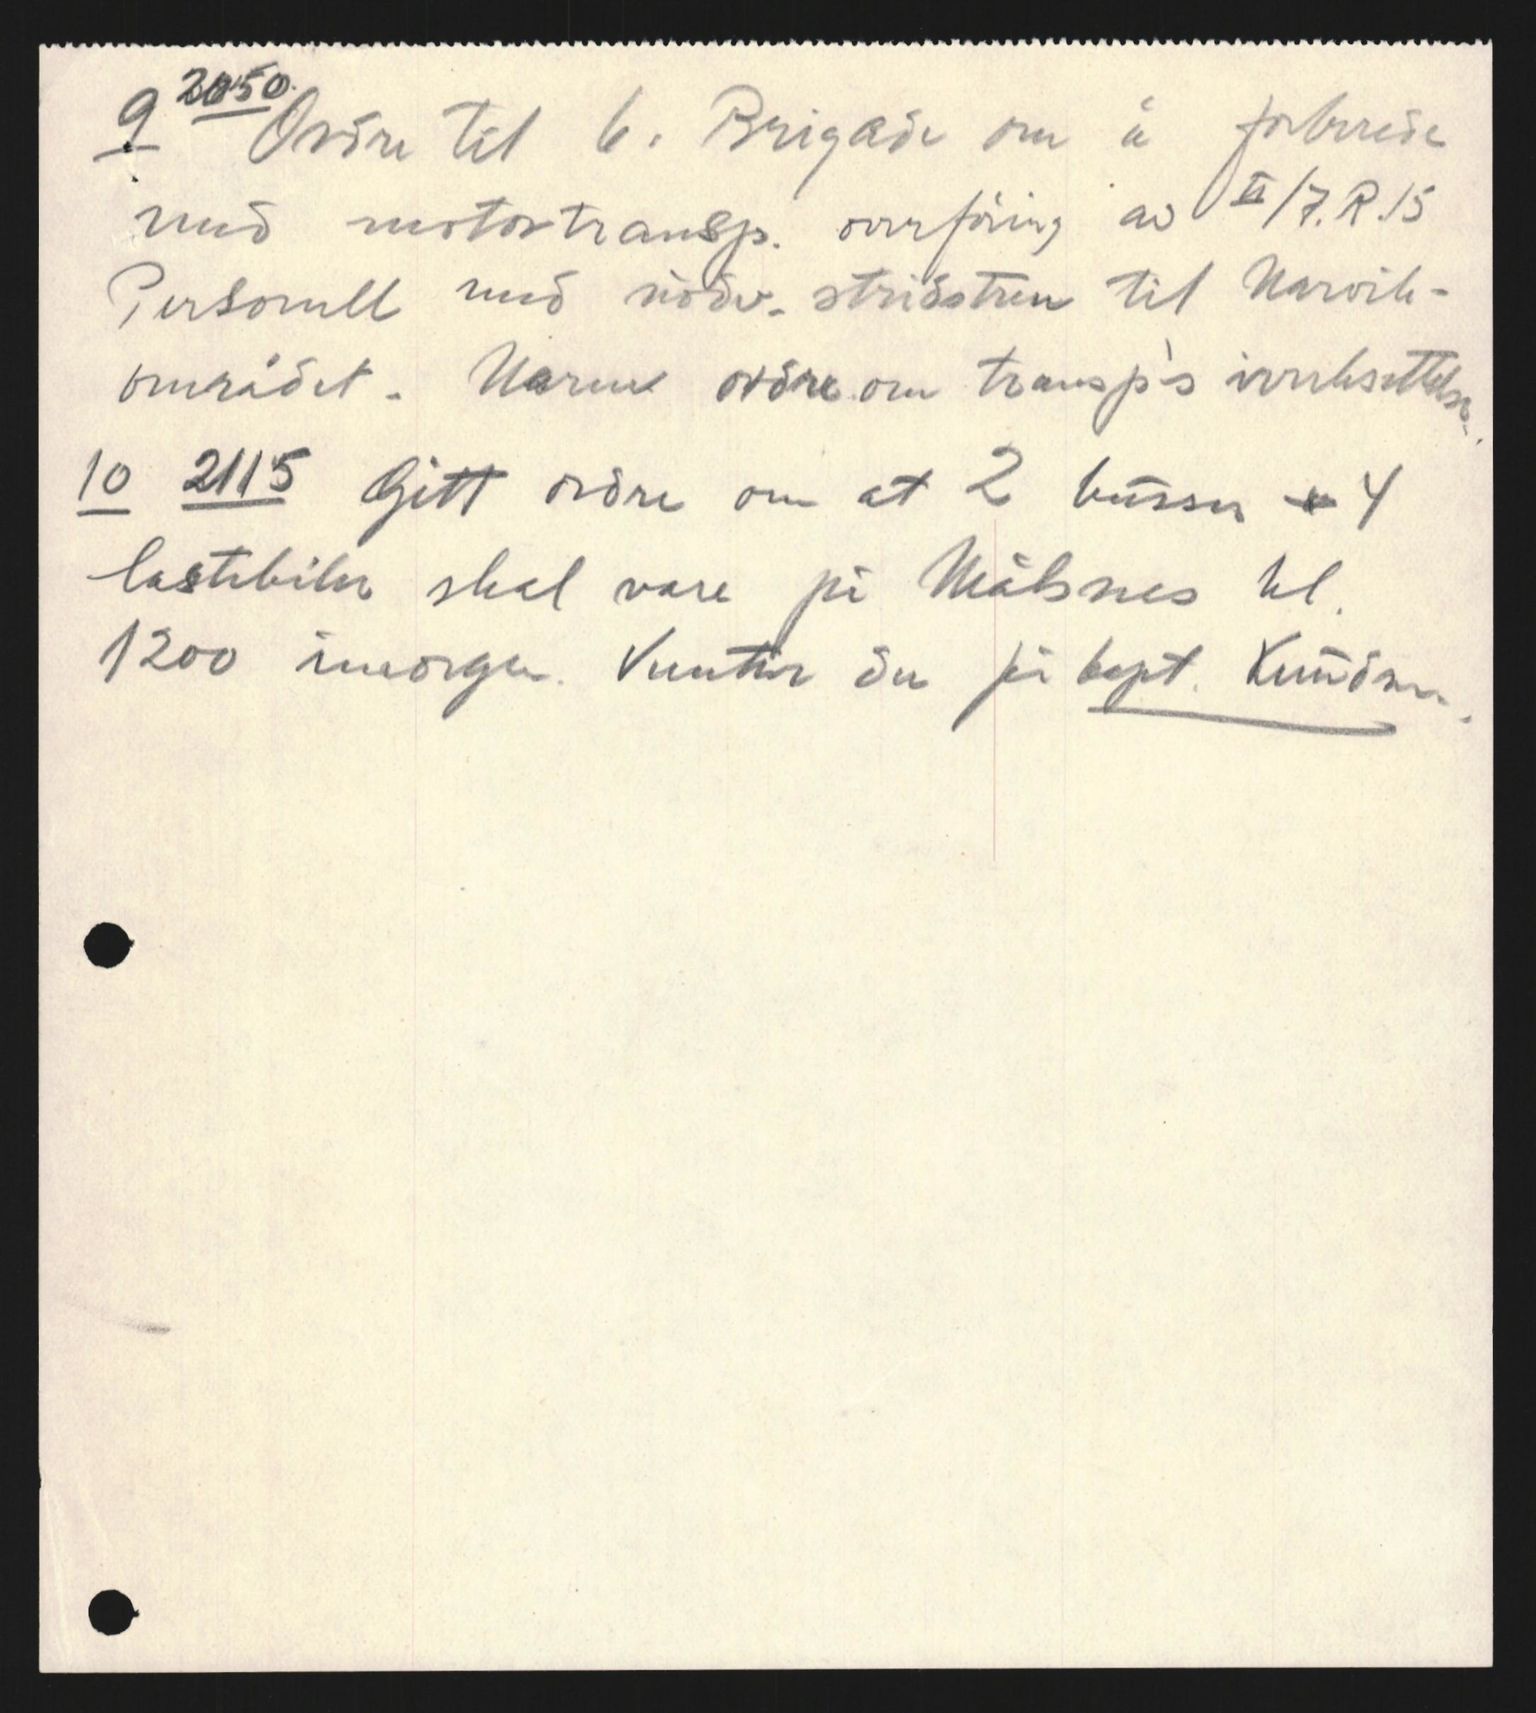 9 2050. Ordre til 6. Brigade om å forberede
med motortransp. overføring av II/I.R.15
Personell med nödv. stridstren til Narvik-
området. Nærmere ordre om transp's iverksettelse.
10 2115 Gitt ordre om at 2 busser + 4
lastebiler skal være på Målsnes kl.
1200 imorgen. Venter der på kapt.